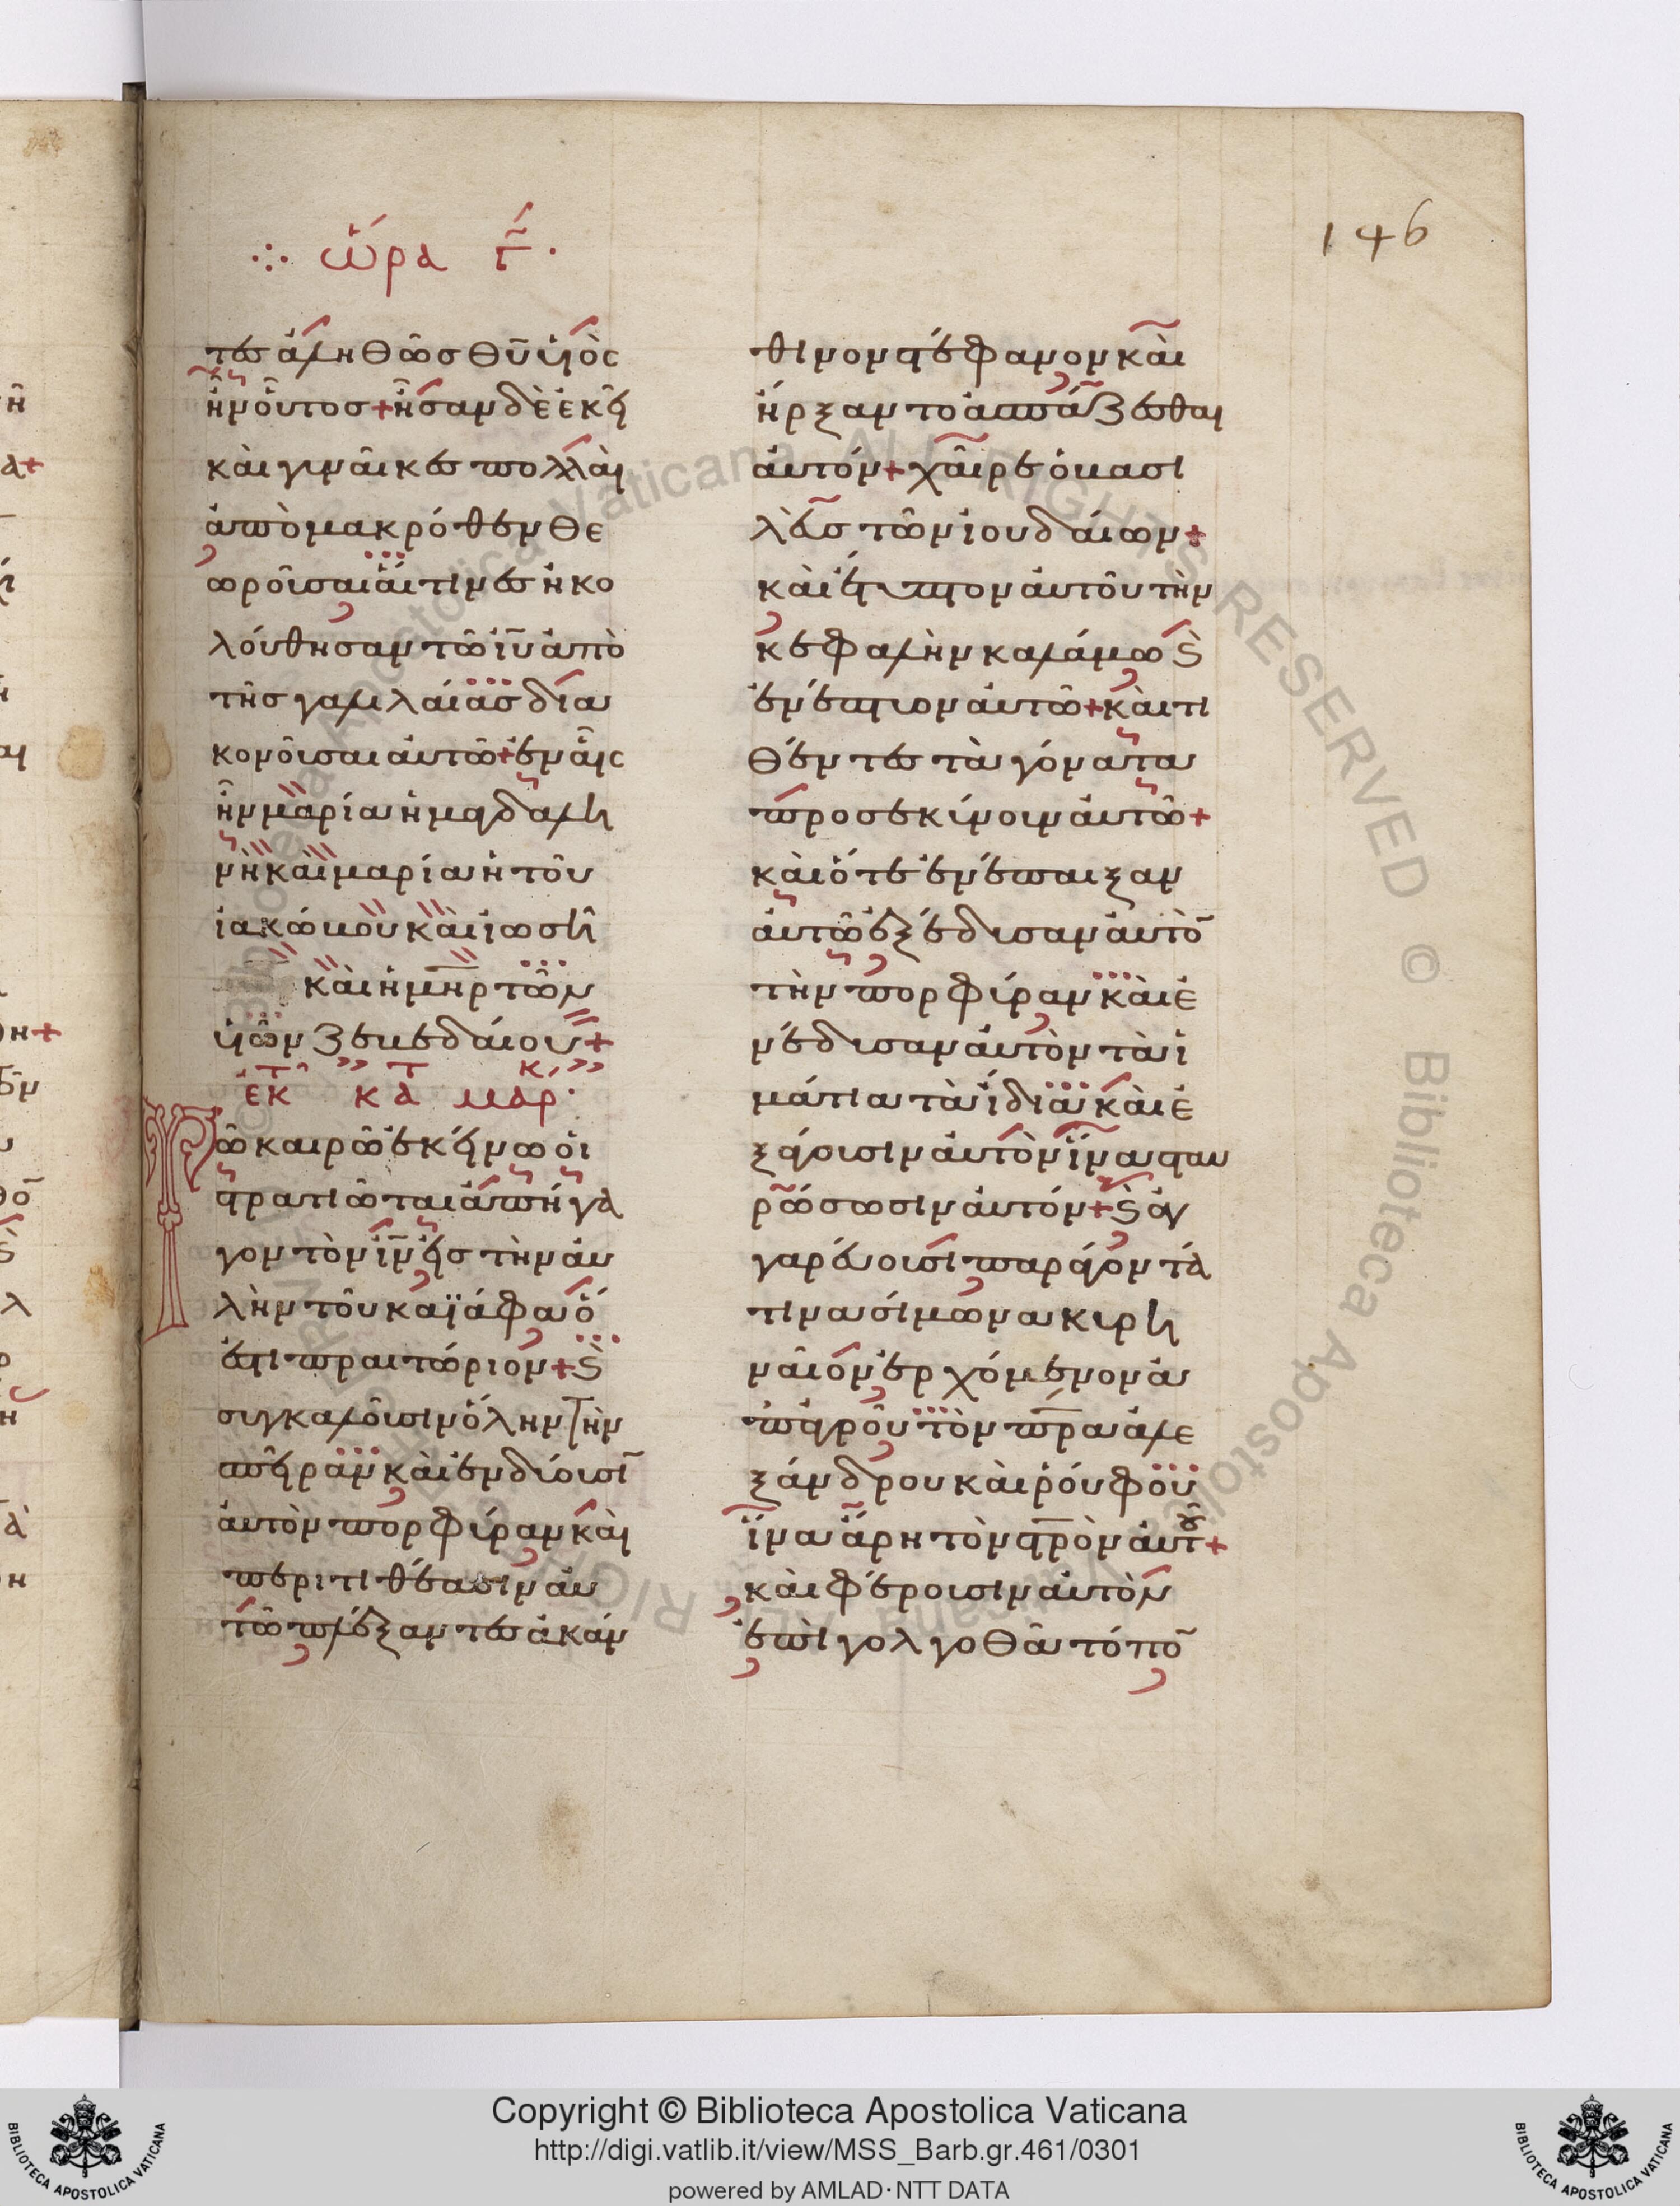 146
ὥρα γ̄
τες ἀληθῶς θ̅υ̅ υἱὸς
ἦν οὗτος + ἦσαν δὲ ἐκεῖ
καὶ γυναῖκες πολλαὶ
ἀπὸ μακρόθεν θε
ωροῦσαι αἵτινες ἠκο
λούθησαν τῶ ι̅υ̅ ἀπὸ
τῆς γαλιλαίας δια
κονοῦσαι αὐτῶ + ἐν αἷς
ἦν μαρία ἡ μαγδαλη
νὴ καὶ μαρία ἡ τοῦ
ἰακώβου καὶ ἰωσῆ
καὶ ἡ μ̅η̅ρ̅ τῶν
υἱῶν ζεβεδαίου +
ἐκ τ κατ μαρ
Τῶ καιρῶ ἐκείνω οἱ
στρατιῶται ἀπήγα
γον τὸν ι̅ν̅ εἰς τὴν αὐ
λὴν τοῦ καϊάφα ὅ
ἐστι πραιτώριον + ϗ
συγκαλοῦσιν ὅλην τὴν
σπεῖραν καὶ ἐνδύουσῑ
αὐτὸν πορφύραν καὶ
περιτιθέασιν αὐ
τῶ πλέξαντες ἀκάν
θινον στέφανον καὶ
ἤρξαντο ἀσπάζεσθαι
αὐτόν + χαῖρε ὁ βασι
λεὺς τῶν ἰουδαίων +
καὶ ἔτυπτον αὐτοῦ τὴν
κεφαλὴν καλάμω ϗ
ἐνέπτυον αὐτῶ + καὶ τι
θέντες τὰ γόνατα
προσεκύνουν αὐτῶ +
καὶ ὅτε ἐνέπαιξαν
αὐτῶ ἐξέδυσαν αὐτὸ̄
τὴν πορφύραν καὶ ἐ
νέδυσαν αὐτὸν τὰ ἱ
μάτια τὰ ἴδια καὶ ἐ
ξάγουσιν αὐτὸν ἵνα σταυ
ρώσωσιν αὐτόν + ϗ ἀγ
γαρεύουσι παράγοντά
τινα σίμωνα κυρη
ναῖον ἐρχόμενον ἀ
π᾽ ἀγροῦ τὸν π̅ρ̅α̅ ἀλε
ξάνδρου καὶ ῥούφου
ἵνα ἄρη τὸν σ̅τ̅ρ̅ὸν αὐτοῦ +
καὶ φέρουσιν αὐτὸν
ἐπὶ γολγοθᾶ τόπο̄
Copyright © Biblioteca Apostolica Vaticana
http://digi.vatlib.it/view/MSS_Barb.gr.461/0301
powered by AMLAD·NTT DATA